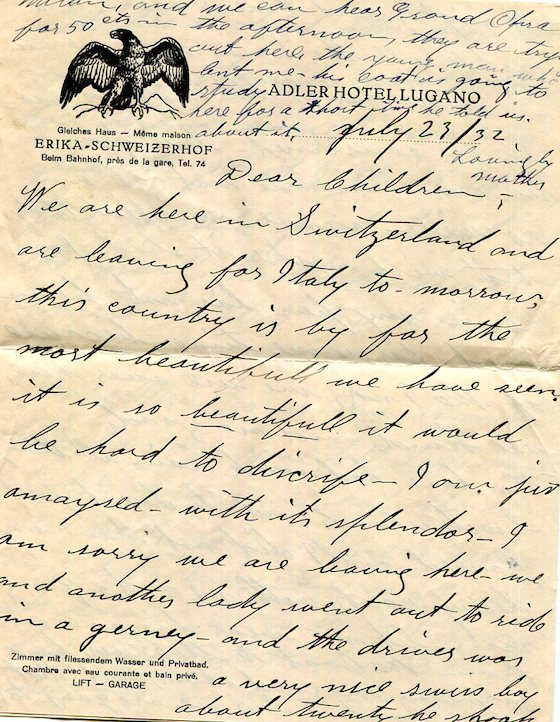 Milan, and we can hear Grand Opra
for 50 cts in the afternoon, they are try
out here, the young man who
lent me his coat is going to
study
here for a short time he told us
about it.
Lovingly
Mother
ADLER HOTEL LUGANO
Gleiches Haus — Même maison
ERIKA-SCHWEIZERHOF
Beim Bahnhof, près de la gare, Tel. 74
July 23/32
Dear Children;
We are here in Switzerland and
are leaving for Italy to-morrow,
this country is by far the
most beautifull we have seen.
it is so beautifull it would
be hard to discripe — I am just
amaysed — with its splendor — I
am sorry we are leaving here — we
and another lady went out to ride
in a gerney — and the driver was
a very nice swiss boy
about twenty he
Zimmer mit fliessendem Wasser und Privatbad.
Chambre avec eau courante et bain privé.
LIFT — GARAGE